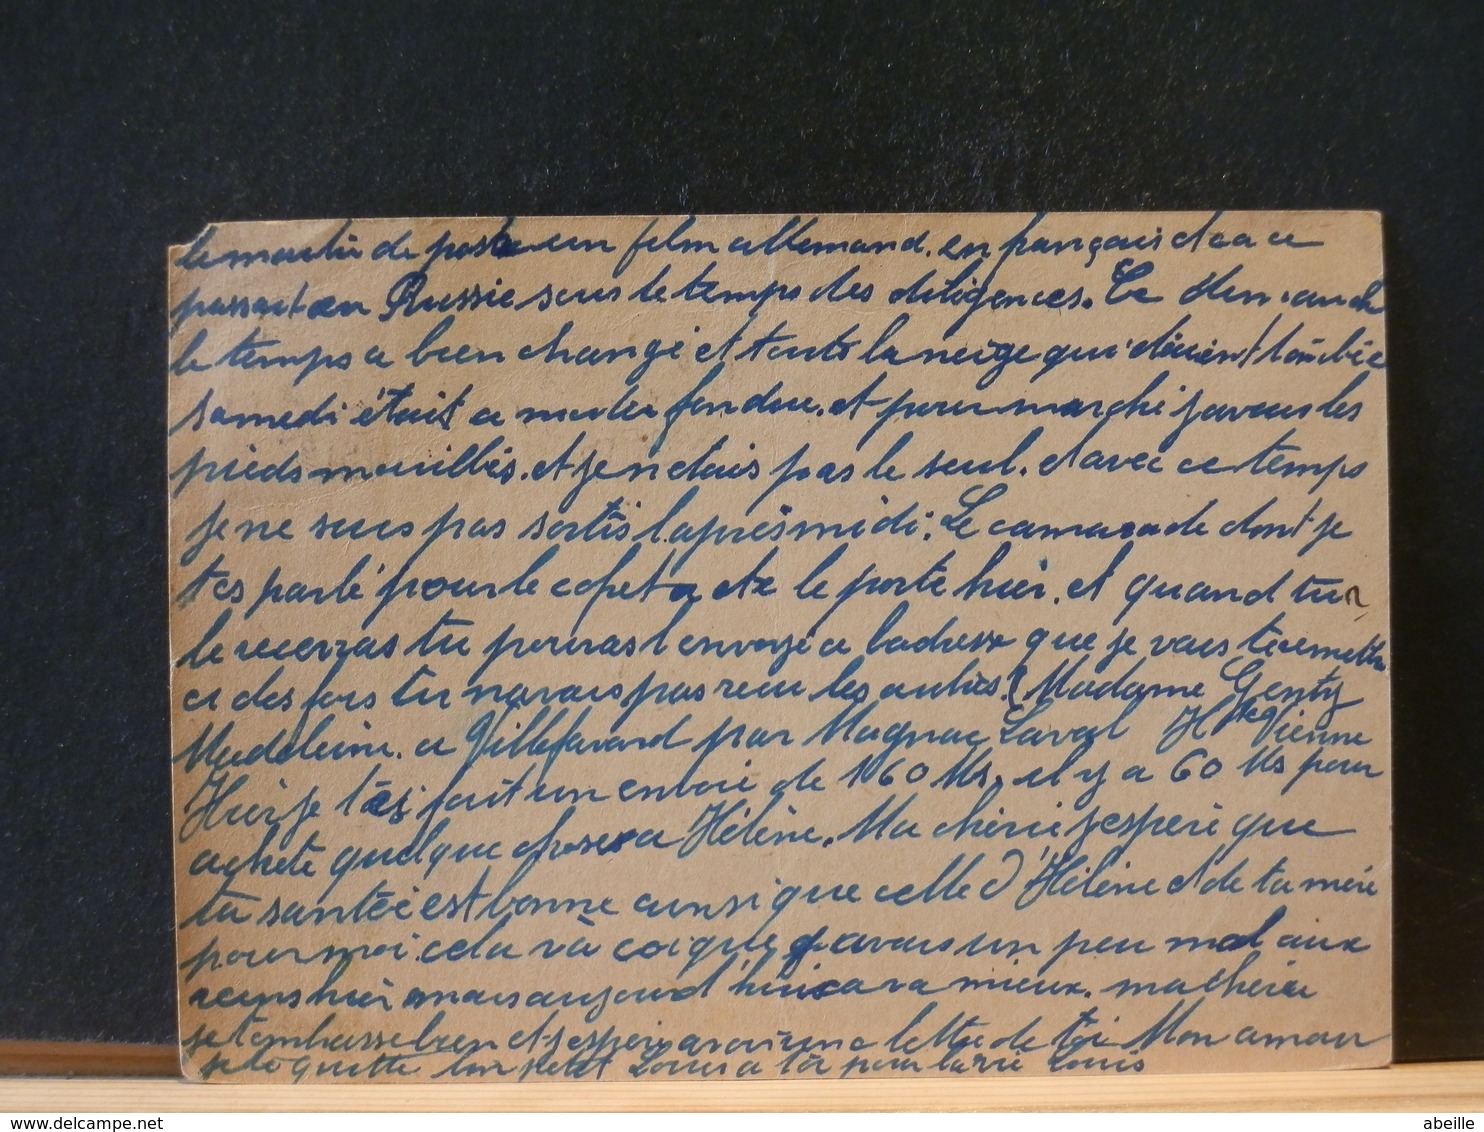 le maitre de poste un film allemand. en français et ca ce
passait en Russie sous le temps des diligences. Ce dimanche
le temps a bien changé et toute la neige qui étaient tombée
samedi était a moitié fondue. et pour marché javais les
pieds mouillés. et je nétais pas le seul. et avec ce temps
je ne suis pas sortis laprès midi. Le camarade dont je
tes parlé pour le est le porte hier. et quand tu
le recevras tu pouras lenvoyé a ladresse que je vais te remettre
ci des fois tu navais pas recu les autres. Madame Genty
Madeleine. a Villefavard par Magnac Laval Hte Vienne
Hier je tai fait un envoi de 160 Ms. il y a 60 Ms pour
acheté quelque chose a Hélène. Ma chérie jespère que
ta santée est bonne ainsi que celle d'Hélène et de ta mère
pour moi. cela và coique javais un peu mal aux
reins hier mais aujourd'hui ca va mieux. ma cherie
je tembrasse bien et jespère avoir une lettre de toi Mon amour
je te quitte ton petit Louis a toi pour la vie Louis
abeille